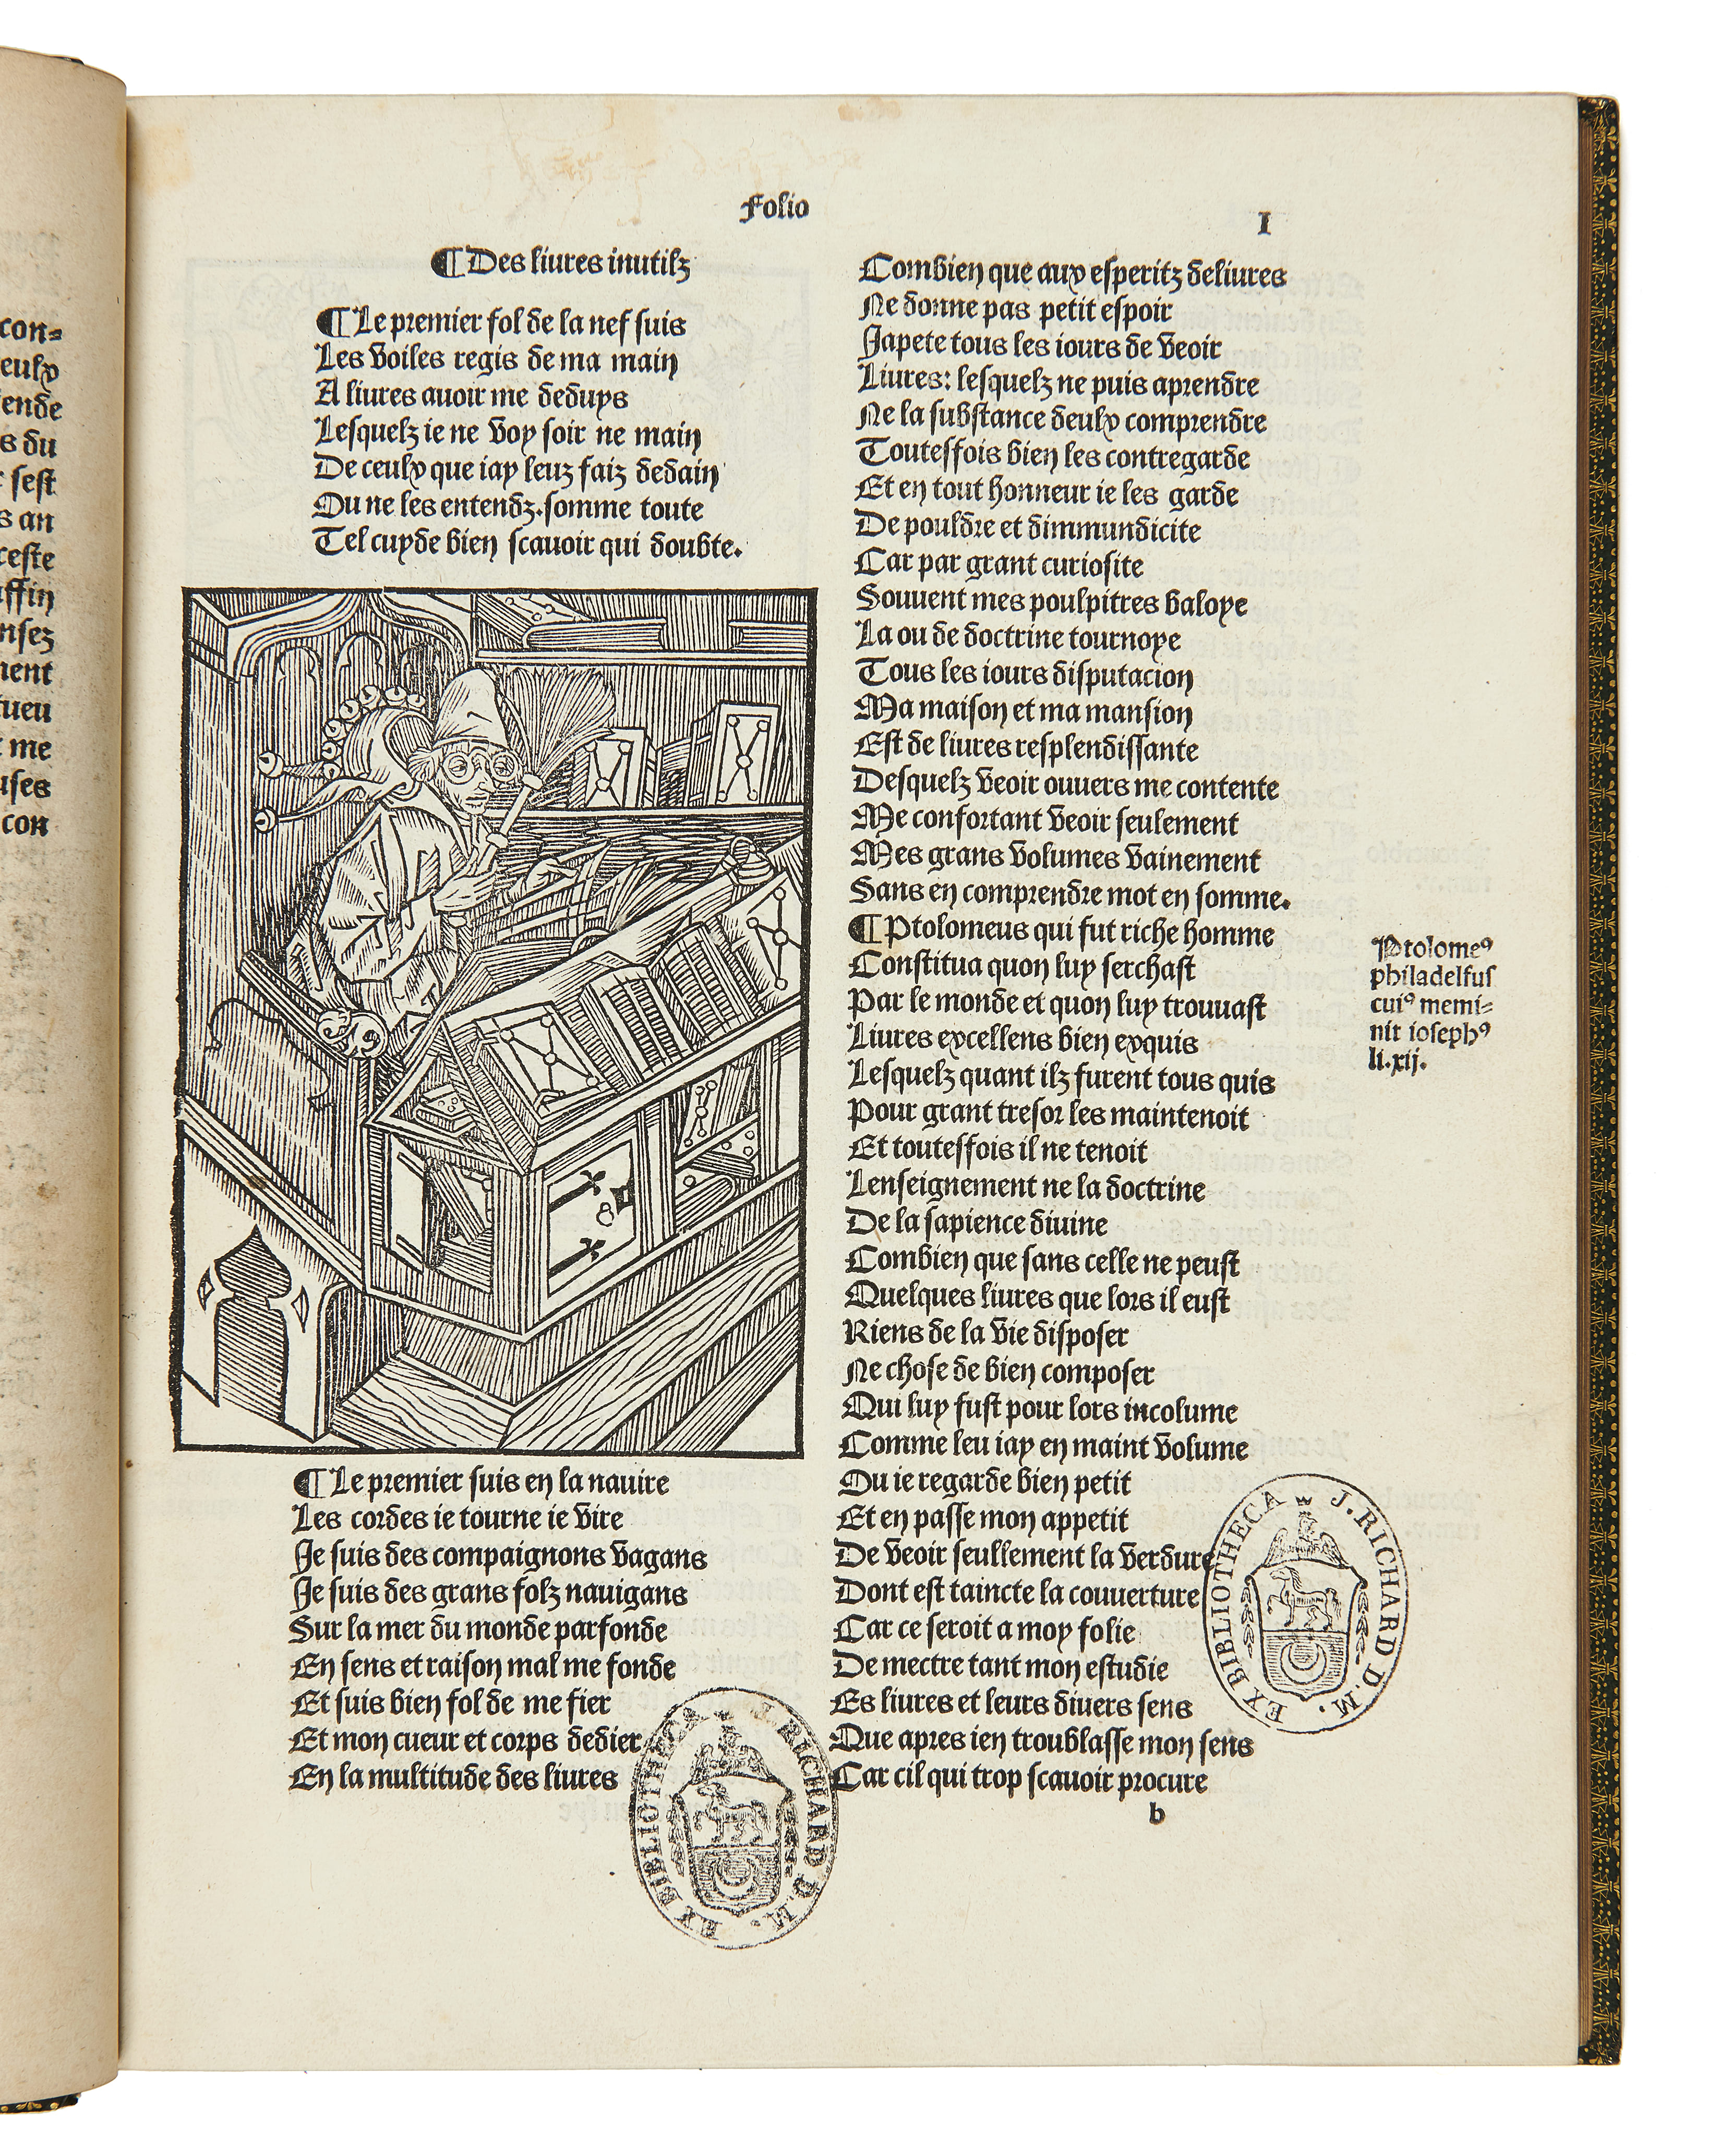 con-
eulx
ende
s du
sest
s an
ceste
ffin
nsez
ment
tueu
me
uses
con
Folio
I
¶ Des liures inutilz
¶ Le premier fol de la nef suis
Les voiles regis de ma main
A liures auoir me deduys
Lesquelz ie ne voy soir ne main
De ceulx que iay leuz faiz dedain
Ou ne les entendz. somme toute
Tel cuyde bien scauoir qui doubte.
¶ Le premier suis en la nauire
Les cordes ie tourne ie vire
Je suis des compaignons vagans
Je suis des grans folz nauigans
Sur la mer du monde parfonde
En sens et raison mal me fonde
Et suis bien fol de me fier
Et mon cueur et corps dedier
En la multitude des liures
Combien que aux esperitz deliures
Ne donne pas petit espoir
Japete tous les iours de veoir
Liures: lesquelz ne puis aprendre
Ne la substance deulx comprendre
Toutesfois bien les contregarde
Et en tout honneur ie les garde
De pouldre et dimmundicite
Car par grant curiosite
Souuent mes poulpitres baloye
La ou de doctrine tournoye
Tous les iours disputacion
Ma maison et ma mansion
Est de liures resplendissante
Desquelz veoir ouuers me contente
Me confortant veoir seulement
Mes grans volumes vainement
Sans en comprendre mot en somme.
¶ Ptolomeus qui fut riche homme
Constitua quon luy serchast
Par le monde et quon luy trouuast
Liures excellens bien exquis
Lesquelz quant ilz furent tous quis
Pour grant tresor les maintenoit
Et toutesfois il ne tenoit
Lenseignement ne la doctrine
De la sapience diuine
Combien que sans celle ne peust
Quelques liures que lors il eust
Riens de la vie disposer
Ne chose de bien composer
Qui luy fust pour lors incolume
Comme leu iay en maint volume
Ou ie regarde bien petit
Et en passe mon appetit
De veoir seullement la verdure
Dont est taincte la couuerture
Car ce seroit a moy folie
De mectre tant mon estudie
Es liures et leurs diuers sens
Que apres ien troublasse mon sens
Car cil qui trop scauoir procure
b
Ptolomeꝰ
philadelfus
cuiꝰ memi-
nit iosephꝰ
li.xij.
EX BIBLIOTHECA J. RICHARD D.M.
EX BIBLIOTHECA J. RICHARD D.M.